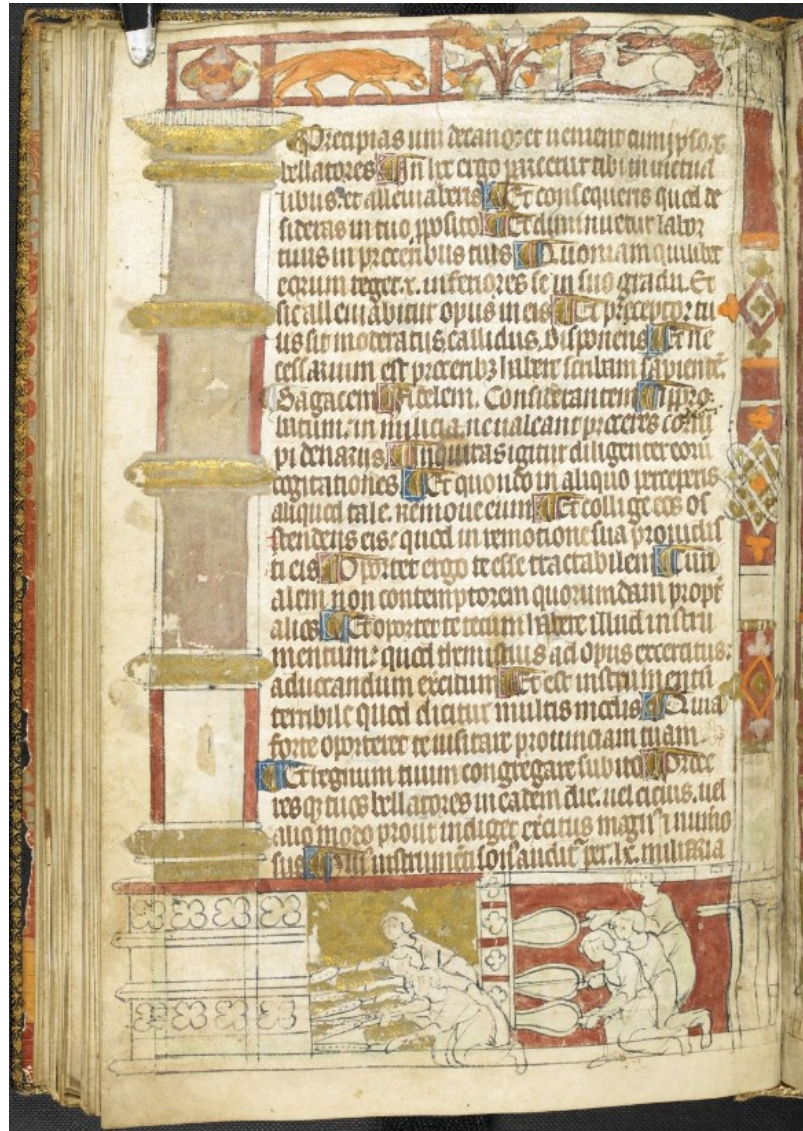 Precipias uni decanorꝫ et uenient cum ipso .x.
bellatores In hex ergo parcetur tibi in uictua
libus. et alleuiaberis Et consequeris quod de
sideras in tuo pposito Et diminuetur labor
tuus in preceribus tuis Quoniam quilibet
eorum reget .x. inferiores se in suo gradu. Et
sic alleuiabitur opus in eis Et preceptor tu
us sit moderatus, callidus, disponens Et ne
cessarium est preceribꝫ habere scribam sapientē.
Sagacem Fidelem. Considerantem In ppro
butum. in milicia. ne ualeant preceres
pi denariis Inquiras igitur diligenter eorū
cogitationes Et quando in aliquo perceperis
aliquod tale. remoue eum Et collige eos os
tendens eis: quod in remotione sua prouidis
ti eis Oportet ergo te esse tractabilem
alem non contemptorem quorumdam propt̄
alios Et oportet te tecum habere illud instru
mentum: quod themistius ad opus excercitus:
aduocandum exc̄itum Et est instrumentū
terribile quod dicitur multis modis Quia
forte oporteret te uisitare prouinciam tuam
Et regnum tuum congregare subito
res qꝫ tuos bellatores in eadem die. uel cicius. uel
alio modo prout indiget exc̄itus magn᷑ i num̄o
suo instrumēti son᷑ audit᷑ per .lx. miliaria